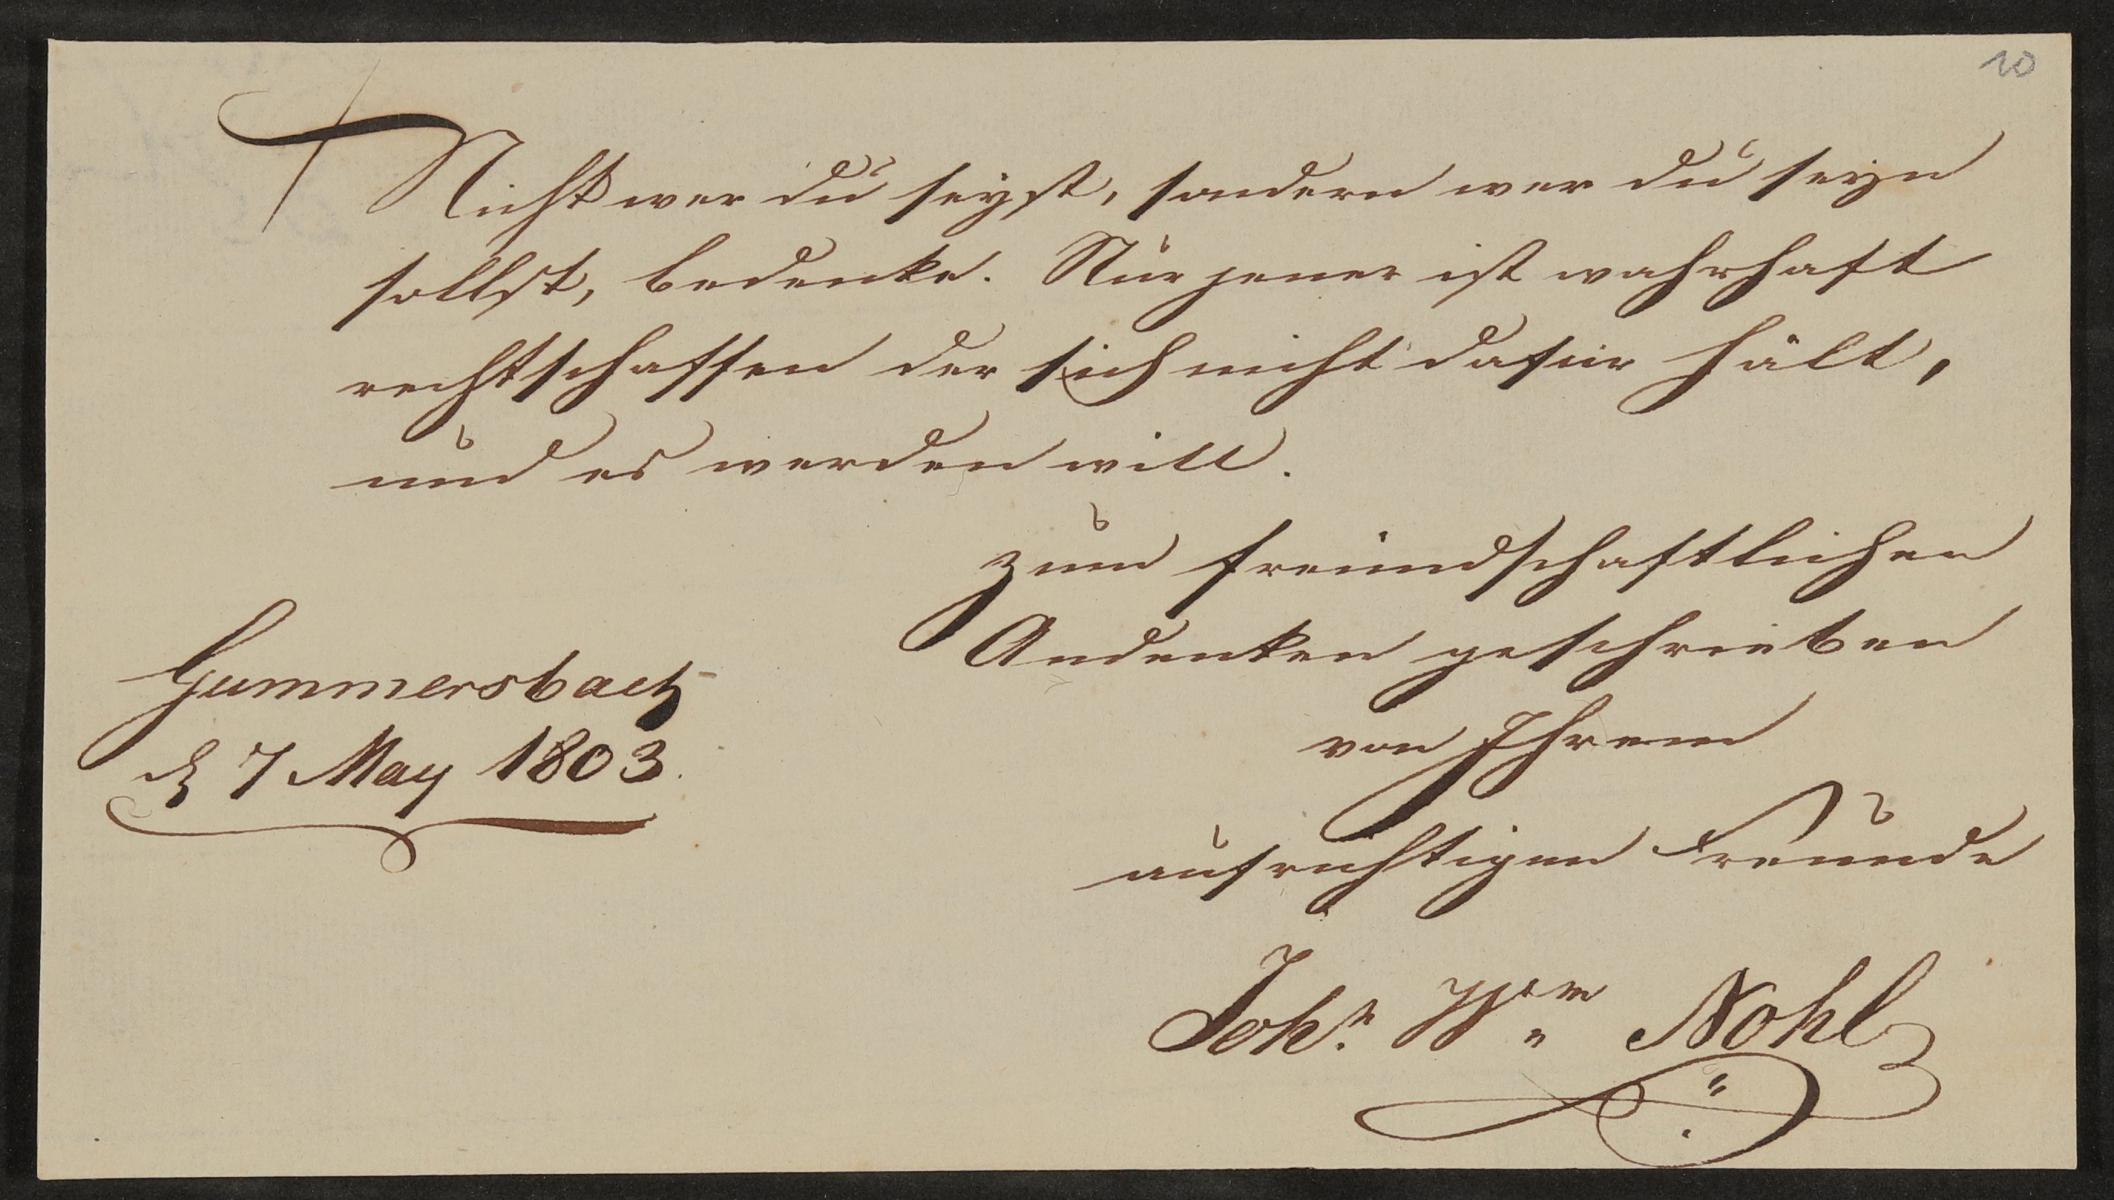 10
Nicht wer du seyst, sondern wer du seyn
sollst, bedenke. Nur jener ist wahrhaft
rechtschaffen der sich nicht dafür hält,
und es werden will.
zum freundschaftlichen
Andenken geschrieben
von Ihrem
aufrichtigen Freunde
Gummersbach
d 7 May 1803.
Joh.n Wm Nohl